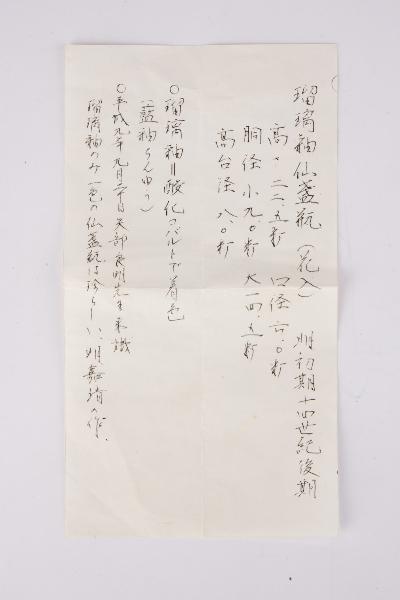 瑠璃釉仙盞瓶（花入）　明初期十四世紀後期
高サ二二、五糎　口径六、〇糎
胴径小九、〇糎　大一四、五糎
高台径八、〇糎
〇瑠璃釉＝酸化コバルトで着色
（藍釉らんゆう）
〇平成九年九月二十日矢部良明先生来識
瑠璃釉のみ一色の仙盞瓶は珍らしい、明嘉靖の作、